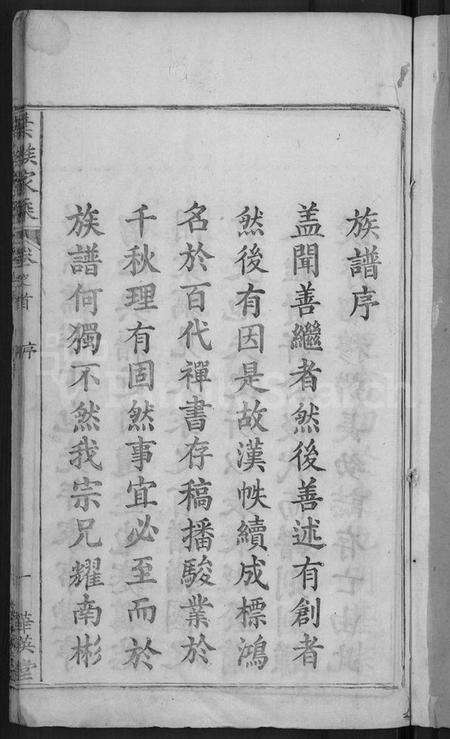 族譜序
盖聞善繼者然後善述有創者
然後有因是故漢帙續成標鴻
名於百代禪書存稿播駿業於
千秋理有固然事宜必至而於
族譜何獨不然我宗兄耀南彬
卷首 序 一